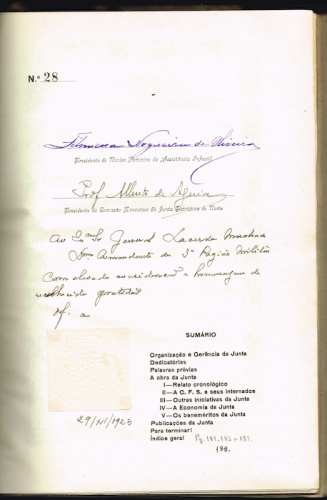 N.º 28
Filomena Nogueira de Oliveira
Presidente do Núcleo Feminino de Assistência Infantil
Prof. Alberto de Aguiar
Presidente da Comissão Executiva da Junta Patriótica do Norte
Ao Ex.mo Sr. General Lacerda Machado
Dmo Comandante da 3ª Região Militar
Com elevada consideração e homenagem de
reconhecida gratidão
Of. a
SUMÁRIO
Organização e Gerência da Junta
Dedicatórias
Palavras prévias
A obra da Junta
I—Relato cronológico
II—A C. F. S. e seus internados
III—Outras iniciativas da Junta
IV—A Economia da Junta
V—Os beneméritos da Junta
Publicações da Junta
Para terminar!
Índice geral Pg. 191, 192 e 197.
198.
29/XII/1923